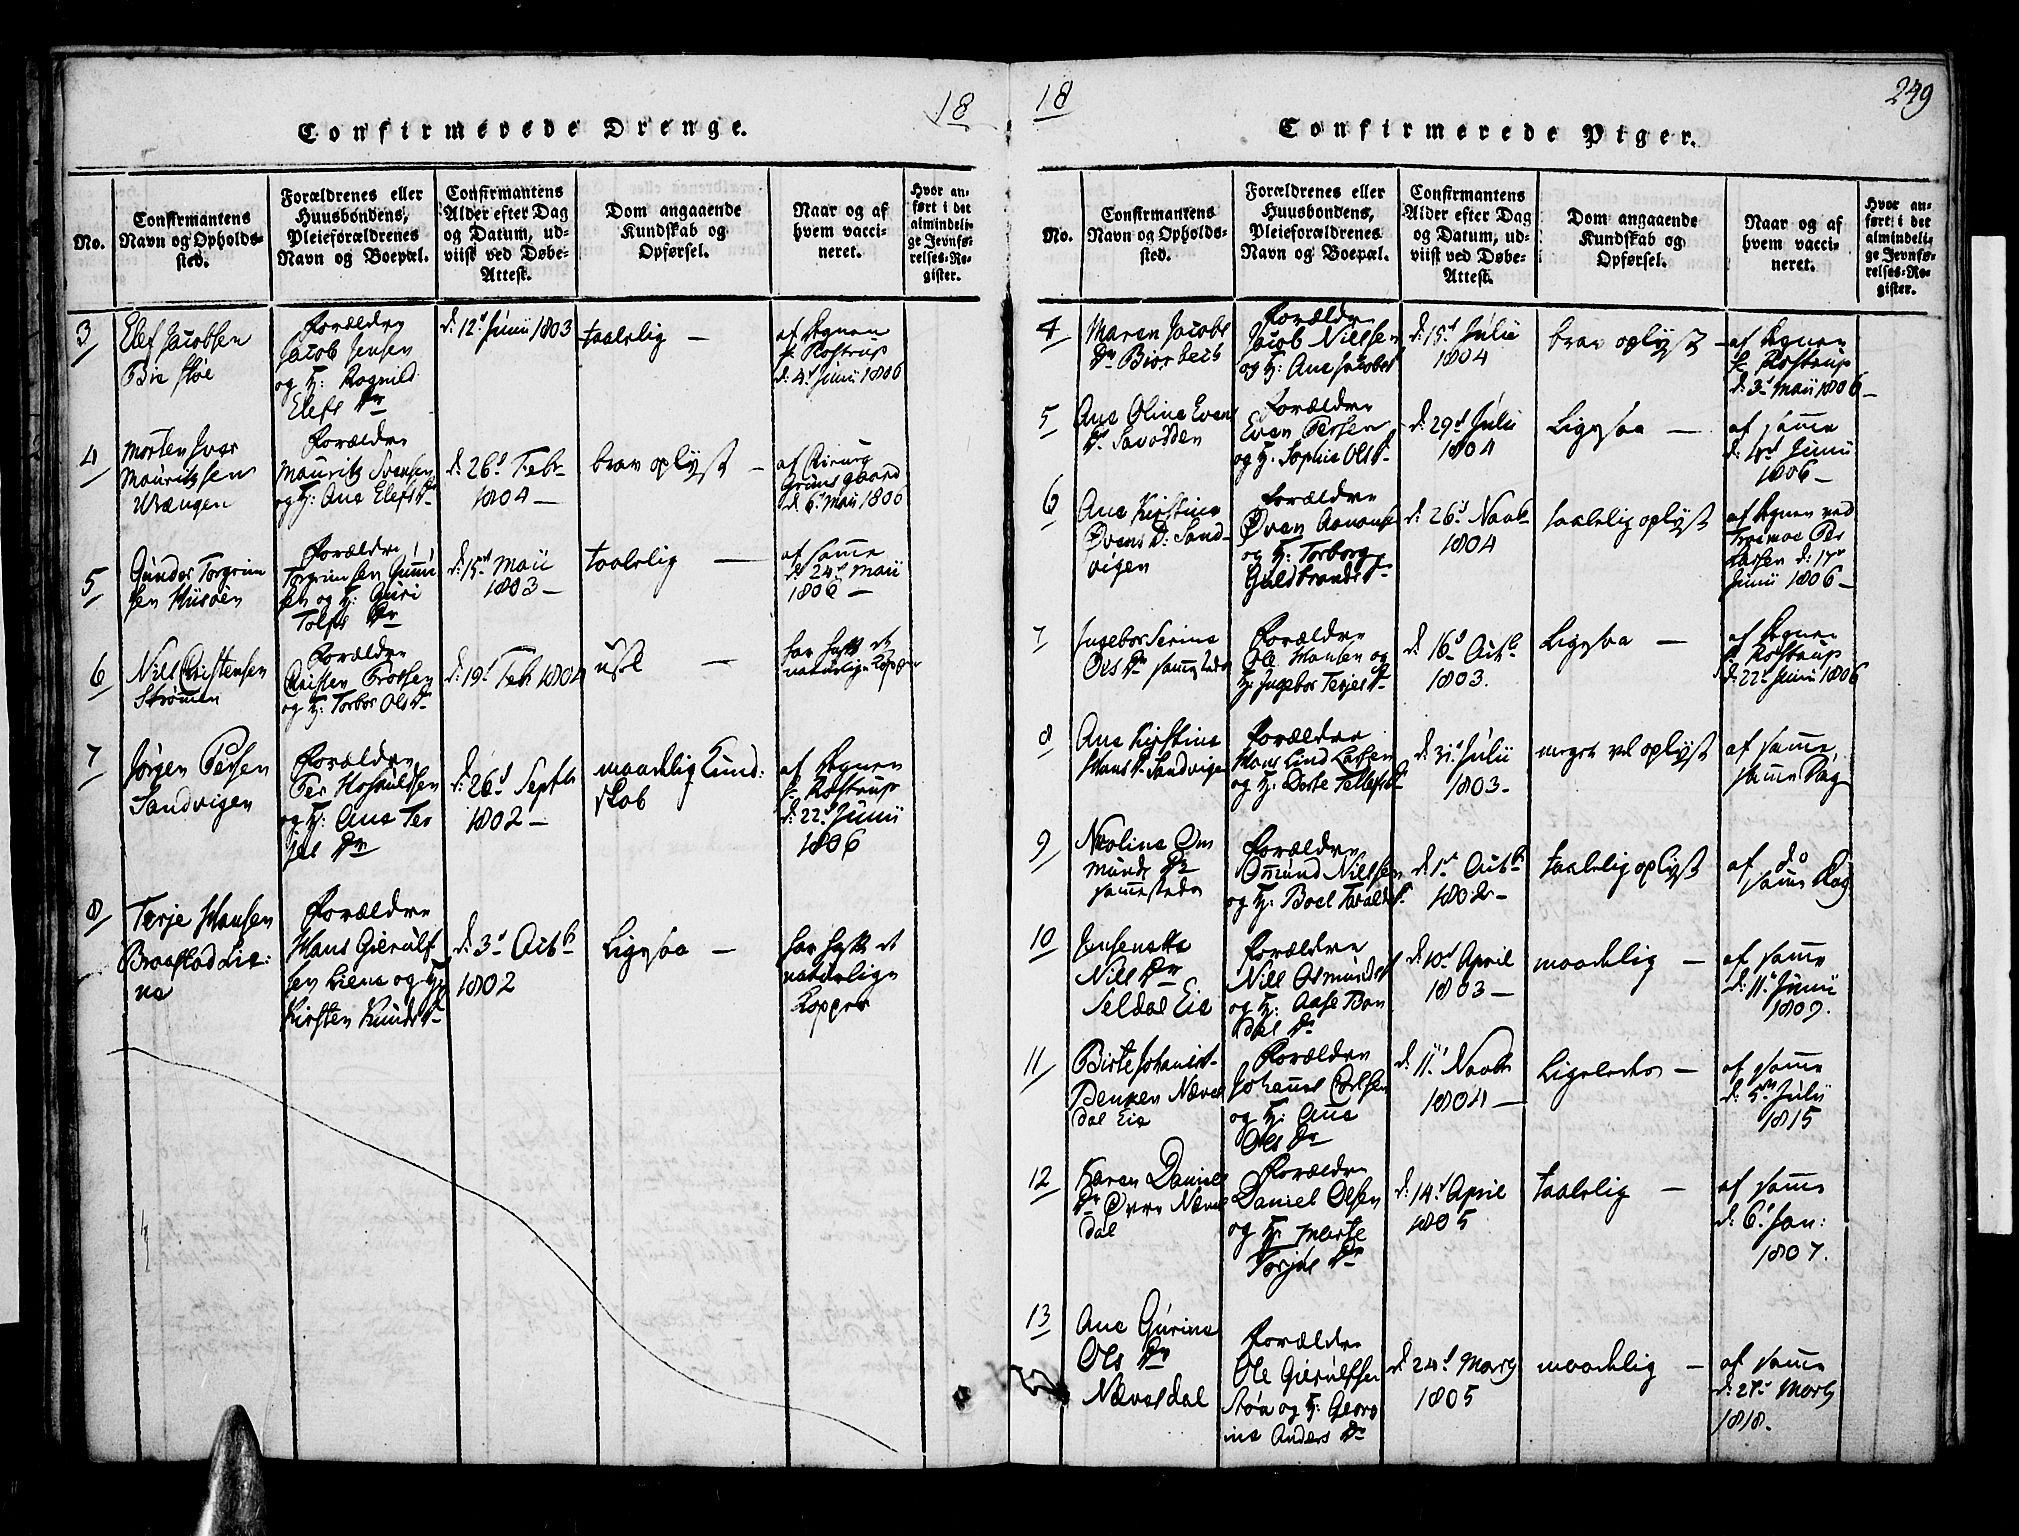 18
Confirmerede Drenge.
No.
Confirmantens
Navn og Opholds-
sted.
Forældrenes eller
Huusbondens,
Pleieforældrenes
Navn og Boepæl.
Confirmantens
Alder efter Dag
og Datum, ud-
viist ved Døbe-
Attest.
Dom angaaende
Kundskab og
Opførsel.
Naar og af
hvem vacci-
neret.
Hvor an-
ført i det
almindeli-
ge Jevnfø-
relses-Re-
gister.
3
Elef Jacobsen
Bie Støe
Forældre
Jacob Jensen
og H: Ragnild
Elefs Dr
d: 12t Junii 1803
taalelig —
af Degnen
Hr Rostrup
d: 4t Junii 1806
4
Morten Ivar
Mauritzsen
Vrængen
Forældre
Mauritz Svensen
og H: Ane Elefs Dr
d: 26d Febr
1804 —
brav oplyst —
af Chirurg
Grimsgaard
d 6t Maii 1806
5
Gunder Torgrim
sen Hisøen
Forældre
Torgrim Gun
sen og H: Guri
Tolfs Dr
d: 15de Maii
1803 —
taalelig —
af samme
d: 24d Maii
1806 —
6
Niels Christensen
Strømmen
Forældre
Christen
og H: Torbor Ols Dr
d: 19d Febr 1804
usel —
har haft de
naturlige Kopper
7
Jørgen Persen
Sandvigen
Forældre
Per
og H: Ane Ter
jes Dr
d: 26d Septbr
1802 —
maadelig Kund:
skab
af Degnen
Hr Rostrup
d: 22d Junii
1806
8
Terje Hansen
Braastad Lie:
ne
Forældre
Hans Gierulf
sen Liene og H:
Kirsten Knuds Dr
d: 3d Octb
1802
Ligesaa —
har haft de
naturlige
Kopper
18
249
Confirmerede Piger.
No.
Confirmantens
Navn og Opholds-
sted.
Forældrenes eller
Huusbondens,
Pleieforældrenes
Navn og Boepæl.
Confirmantens
Alder efter Dag
og Datum, ud-
viist ved Døbe-
Attest.
Dom angaaende
Kundskab og
Opførsel.
Naar og af
hvem vacci-
neret.
Hvor an-
ført i det
almindeli-
ge Jevnfø-
relses-Re-
gister.
4
Maren Jacobs
Dr
Forældre
Jacob Nielsen
og H: Ane Jacobs Dr
d: 15d Julii
1804
brav oplyst —
af Degnen
Hr Rostrup
d: 3d Maii 1806 —
5
Ane Oline Evens
Dr Savodden
Forældre
Even Persen
og H: Sophie Ols Dr
d: 29d Julii
1804
Ligesaa —
af samme
d: Junii
1806 —
6
Ane Kirstine
Øvens Dr Sand
vigen
Forældre
Øven Aanonsen
og H: Torborg
Guldbrands Dr
d: 26d Novb
1804
taalelig oplyst
af Degnen ved
Tromøe Per
Lassen d: 17de
Junii 1806 —
7
Ingebor Serine
Ols Dr sammesteds
Forældre
Ole Hansen og
H: Ingebor Terjes Dr
d: 16d Octb
1803.
Ligesaa —
af Degnen
Hr Rostrup
d: 22d Junii 1806
8
Ane Kirstine
Hans Dr Sandvigen
Forældre
Hans Lind Lassen
og H: Dorte Tellefs Dr
d: 31d Julii
1803 —
meget vel oplyst
af samme
samme Dag
9
Nicoline Om
munds Dr
sammesteds
Forældre
Ommund Nielsen
og H: Boel Taralds Dr
d: 1st Octb
1802 —
taalelig oplyst
af do
samme Dag
10
Jensenette
Niels Dr
Seldal Eie
Forældre
Niels Osmunds
og H: Aase Ben
dal Dr
d: 10d April
1803 —
maadelig —
af samme
d: 11t Junii
1809.
11
Birte Johannes-
Bensen Næves
dal Eie
Forældre
Johannes
og H: Ane
Ols Dr
d: 11t Novbr
1804 —
Ligeledes —
af samme
d: 5te July
1815
12
Karen Daniels
Dr Øvre Næves
dal
Forældre
Daniel Olsen
og H: Marte
Torjus Dr
d: 14d April
1805
taalelig —
af samme
d: 6t Jan:
1807.
13
Ane Gurine
Ols Dr
Nævesdal
Forældre
Ole Gierulfsen
Støa og H: Georg
ine Anders Dr
d: 24d Marts
1805
maadelig —
af samme
d: 27d Marts
1818.